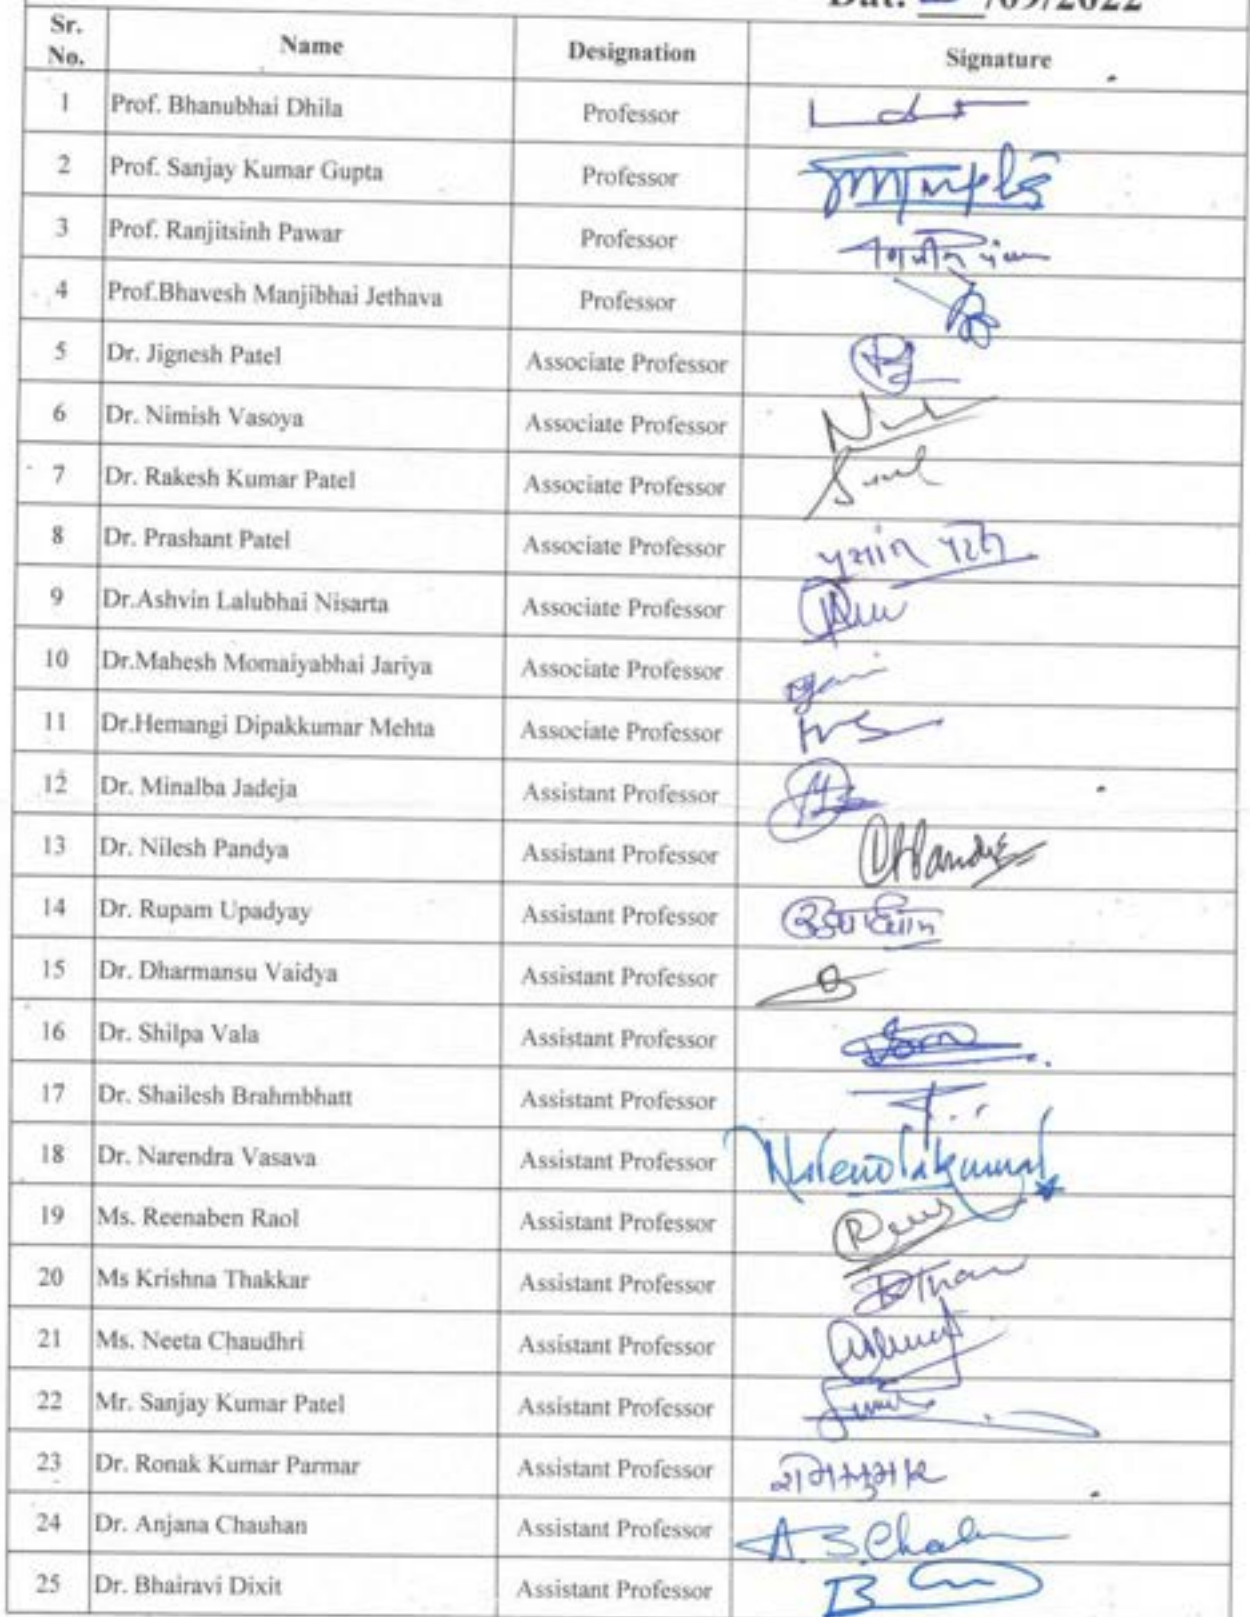 Dat. /09/2022
Sr. No. Name Designation Signature
1 Prof. Bhanubhai Dhila Professor
2 Prof. Sanjay Kumar Gupta Professor
3 Prof. Ranjitsinh Pawar Professor
4 Prof.Bhavesh Manjibhai Jethava Professor
5 Dr. Jignesh Patel Associate Professor
6 Dr. Nimish Vasoya Associate Professor
7 Dr. Rakesh Kumar Patel Associate Professor
8 Dr. Prashant Patel Associate Professor
9 Dr.Ashvin Lalubhai Nisarta Associate Professor
10 Dr.Mahesh Momaiyabhai Jariya Associate Professor
11 Dr.Hemangi Dipakkumar Mehta Associate Professor
12 Dr. Minalba Jadeja Assistant Professor
13 Dr. Nilesh Pandya Assistant Professor
14 Dr. Rupam Upadyay Assistant Professor
15 Dr. Dharmansu Vaidya Assistant Professor
16 Dr. Shilpa Vala Assistant Professor
17 Dr. Shailesh Brahmbhatt Assistant Professor
18 Dr. Narendra Vasava Assistant Professor
19 Ms. Reenaben Raol Assistant Professor
20 Ms Krishna Thakkar Assistant Professor
21 Ms. Neeta Chaudhri Assistant Professor
22 Mr. Sanjay Kumar Patel Assistant Professor
23 Dr. Ronak Kumar Parmar Assistant Professor
24 Dr. Anjana Chauhan Assistant Professor
25 Dr. Bhairavi Dixit Assistant Professor